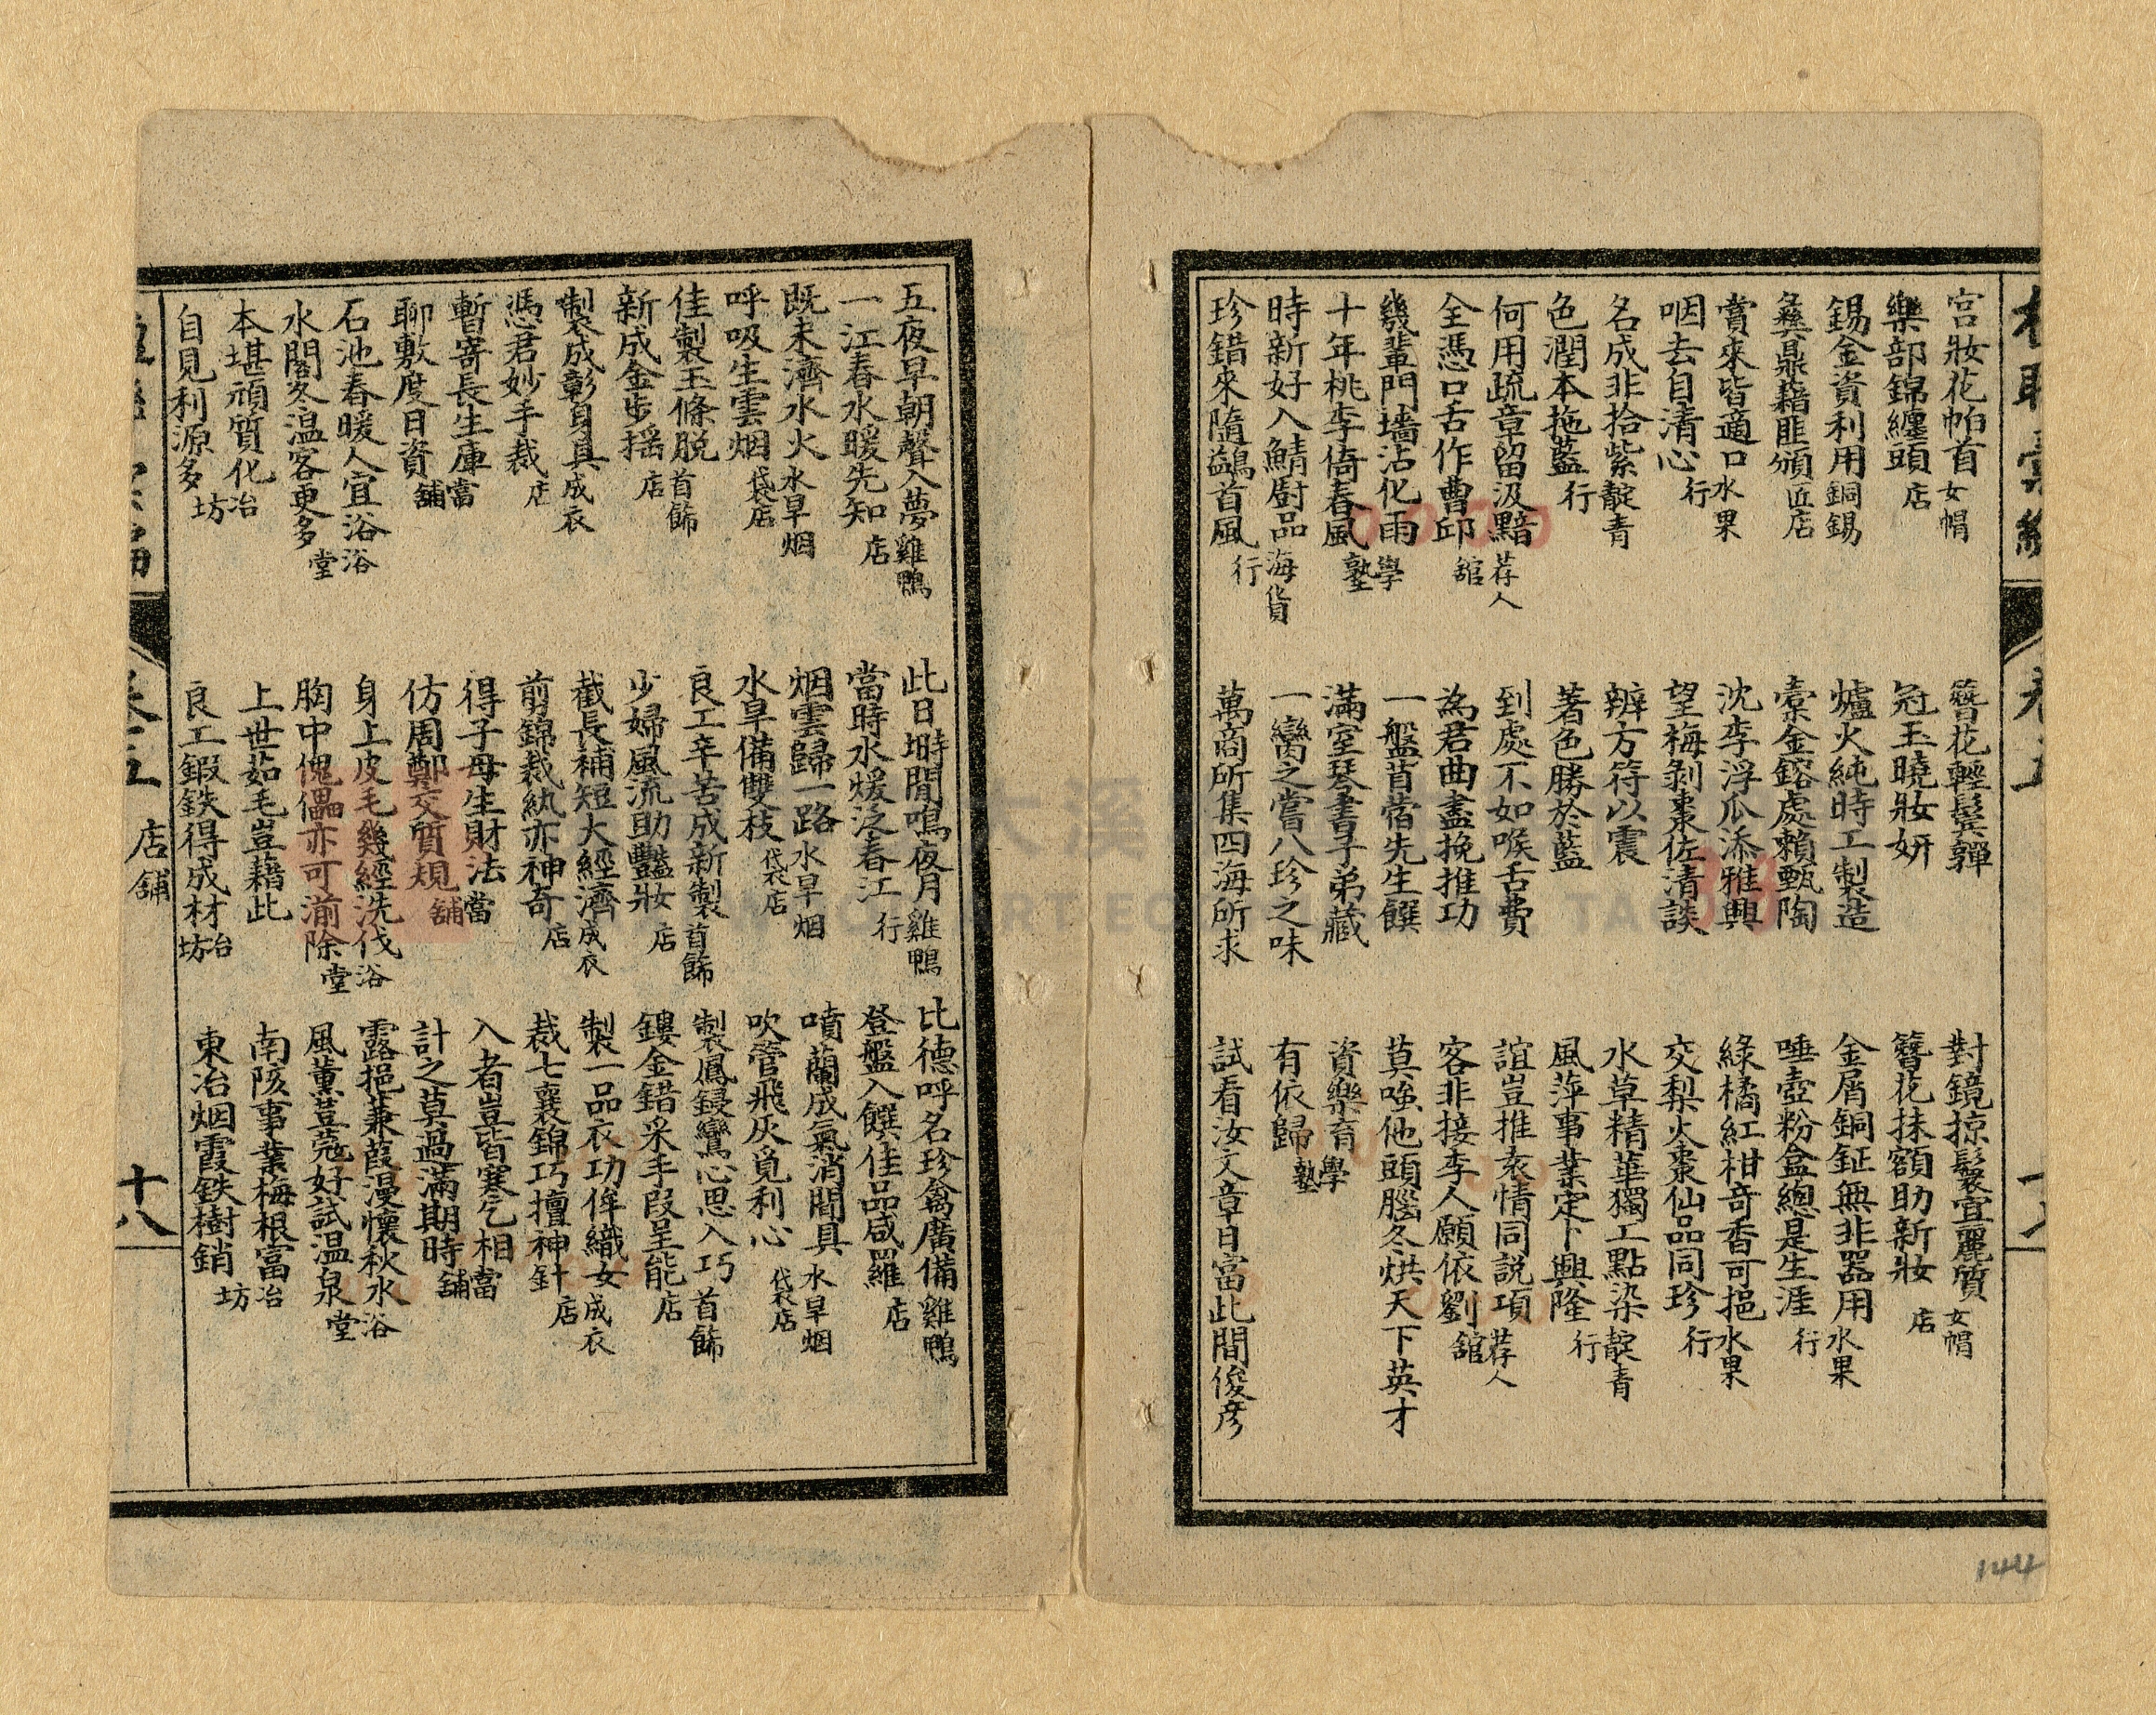 宫妝花帕首 女帽
樂部錦纏頭 店
錫金資利用 銅錫
彝鼎藉匪頒 匠店
賞來皆適口 水果
咽去自清心 行
名成非拾紫 靛青
色潤本拖藍 行
何用疏章留汲黯 荐人
全憑口舌作曹邱 舘
幾輩門墻沾化雨 學
十年桃李倚春風 塾
時新好入鯖廚品 海貨
珍錯來隨鷁首風 行
簪花輕鬓嚲
冠玉曉妝妍
爐火純時工製造
槖金鎔處賴甄陶
沈李浮瓜添雅興
望梅剝棗佐清談
辨方符以震
著色勝於藍
到處不如喉舌費
為君曲盡挽推功
一盤苜蓿先生饌
滿室琴書子弟藏
一臠之嘗八珍之味
萬商所集四海所求
對鏡掠鬟宜麗質 女帽
簪花抹額助新妝 店
金屑銅鉦無非器用 水果
唾壺粉盒總是生涯 行
綠橘紅柑奇香可挹 水果
交梨火棗仙品同珍 行
水草精華獨工點染 靛青
風萍事業定卜興隆 行
誼豈推袁情同説項 荐人
客非接李人願依劉 舘
莫嗤他頭腦冬烘天下英才
資樂育 學
有依歸 塾
試看汝文章日富此間俊彦
五夜早朝聲入夢 雞鴨
一江春水暖先知 店
既未濟水火 水旱烟
呼吸生雲烟 袋店
佳製玉條脱 首飾
新成金步摇 店
製成彰身具 成衣
憑君妙手裁 店
暫寄長生庫 當
聊敷度日資 舖
石池春暖人宜浴 浴
水閣冬温客更多 堂
本堪頑質化 冶
自見利源多 坊
此日塒間鳴夜月 雞鴨
當時水煖泛春江 行
烟雲歸一路 水旱烟
水旱備雙枝 袋店
良工辛苦成新製 首飾
少婦風流助豔妝 店
截長補短大經濟 成衣
剪錦裁紈亦神奇 店
得子母生財法 當
仿周鄭交質規 舖
身上皮毛幾經洗伐 浴
胸中傀儡亦可湔除 堂
上世茹毛豈藉此 冶
良工鍜鉄得成材 坊
比德呼名珍禽廣備 雞鴨
登盤入饌佳品咸羅 店
噴蘭成氣消閒具 水旱烟
吹管飛灰覓利心 袋店
製鳳鋟鸞心思入巧 首飾
鏤金錯采手段呈能 店
製一品衣功侔織女 成衣
裁七襄錦巧擅神針 店
入者豈皆寒乞相 當
計之莫過滿期時 舖
露挹蒹葭漫懷秋水 浴
風薰荳蔻好試温泉 堂
南陔事業梅根富 冶
東冶烟霞鉄樹銷 坊
店舖
十八
144